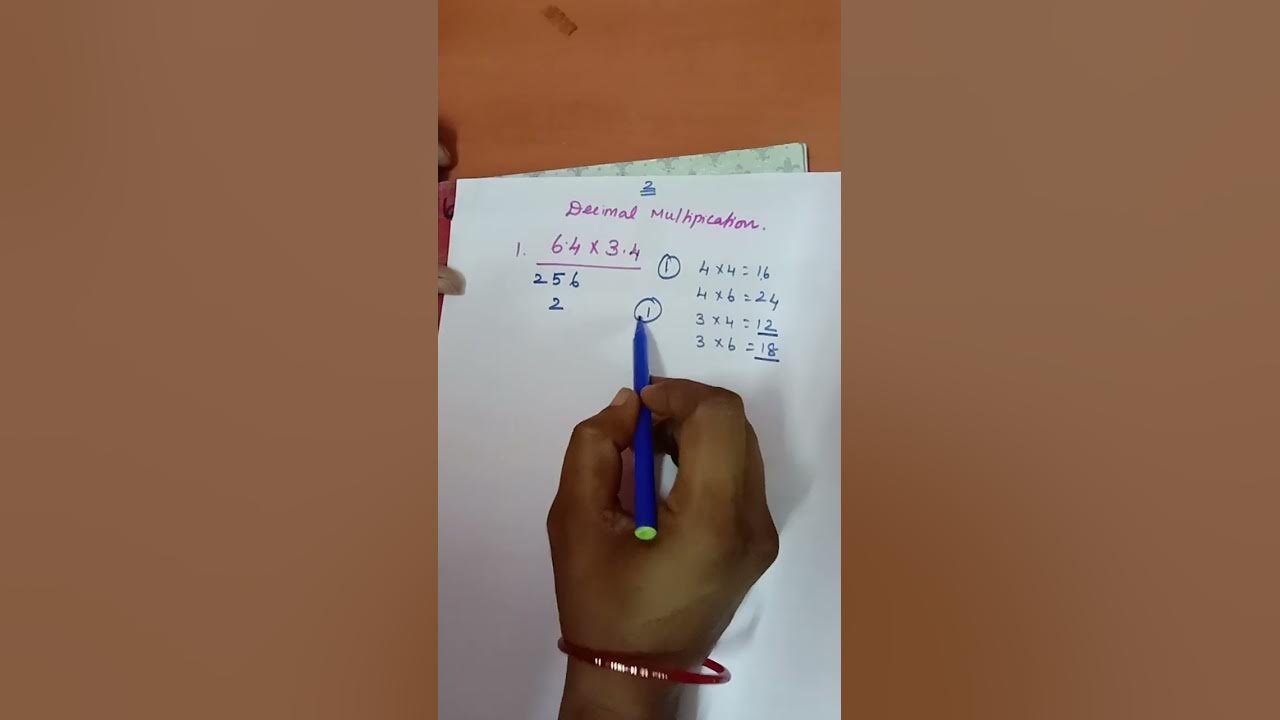 2
Decimal Multipication.
1. 6.4 x 3.4
256
2
1
1
4 x 4 = 16
4 x 6 = 24
3 x 4 = 12
3 x 6 = 18